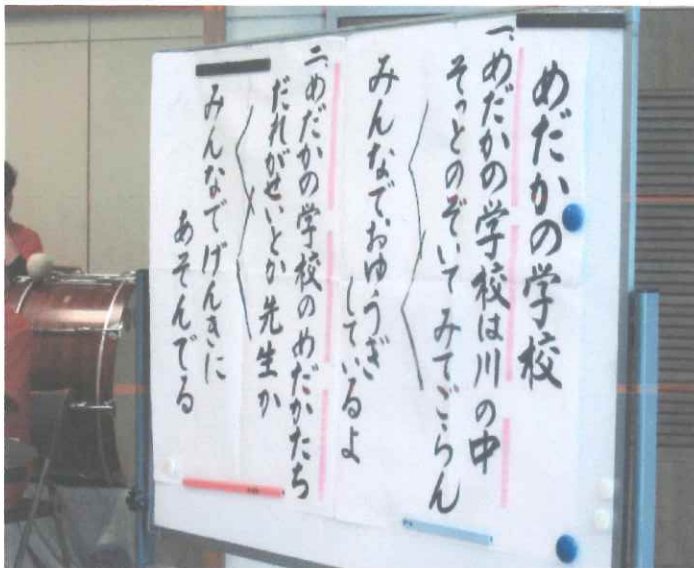 めだかの学校
一、めだかの学校は川の中
そっとのぞいてみてごらん
みんなでおゆうぎ
しているよ
二、めだかの学校のめだかたち
だれがせいとか先生か
みんなでげんきに
あそんでる